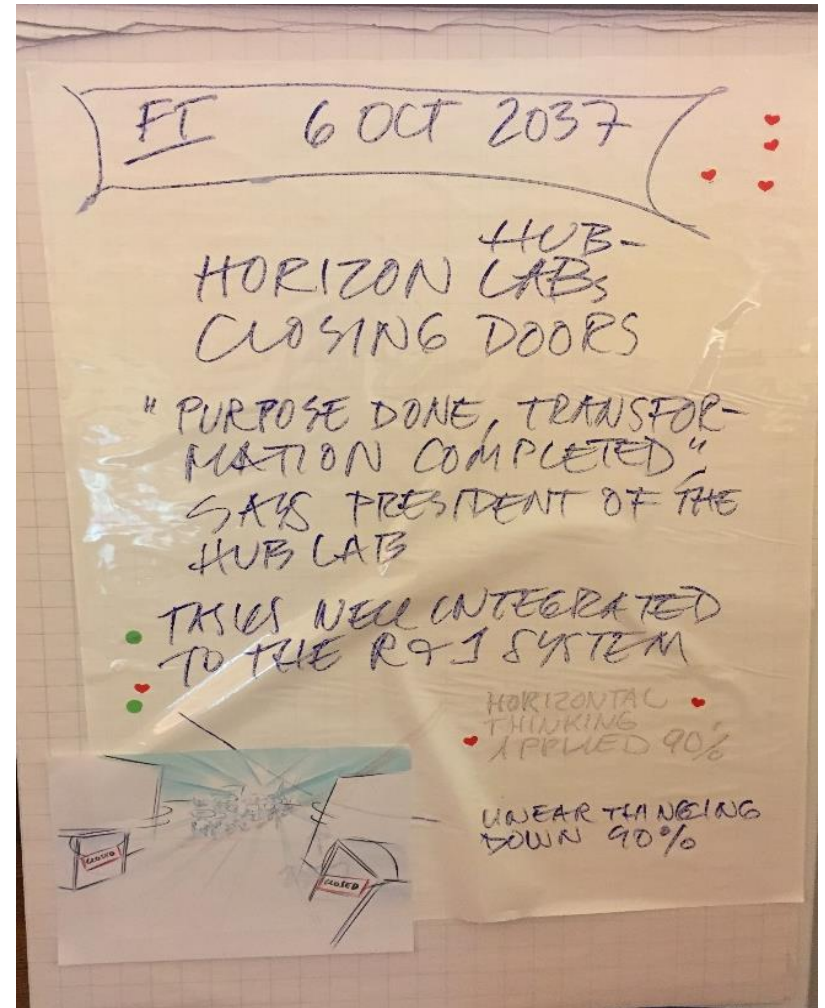 FT 6 OCT 2037
HUB-
HORIZON LABs
CLOSING DOORS
" PURPOSE DONE, TRANSFOR-
MATION COMPLETED"
SAYS PRESIDENT OF THE
HUB LAB
TASKS WELL INTEGRATED
TO THE R & I SYSTEM
HORIZONTAL
THINKING
APPLIED 90%
LINEAR THINKING
DOWN 90%
CLOSED
CLOSED